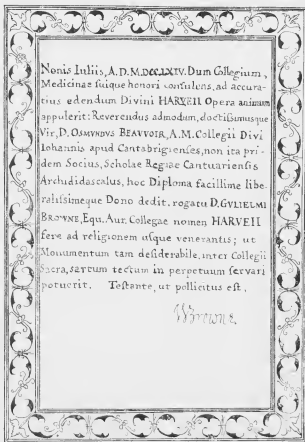 Nonis Iuliis, A.D.M.DCC.LXIV. Dum Collegium,
Medicinae suique honori consulens, ad accura-
tius edendum Divini HARVEII Opera animum
appulerit: Reverendus admodum, doctissimusque
Vir, D. OSMUNDUS BEAUVOIR, A.M. Collegii Divi
Iohannis apud Cantabrigienses, non ita pri-
dem Socius, Scholae Regiae Cantuariensis
Archididascalus, hoc Diploma facillime libe-
ralissimeque Dono dedit. rogatu D. GULIELMI
BROWNE, Equ. Aur. Collegae nomen HARVEII
fere ad religionem usque venerantis; ut
Monumentum tam desiderabile, inter Collegii
Sacra, sartum tectum in perpetuum servari
potuerit. Testante, ut pollicitus est,
WBrowne